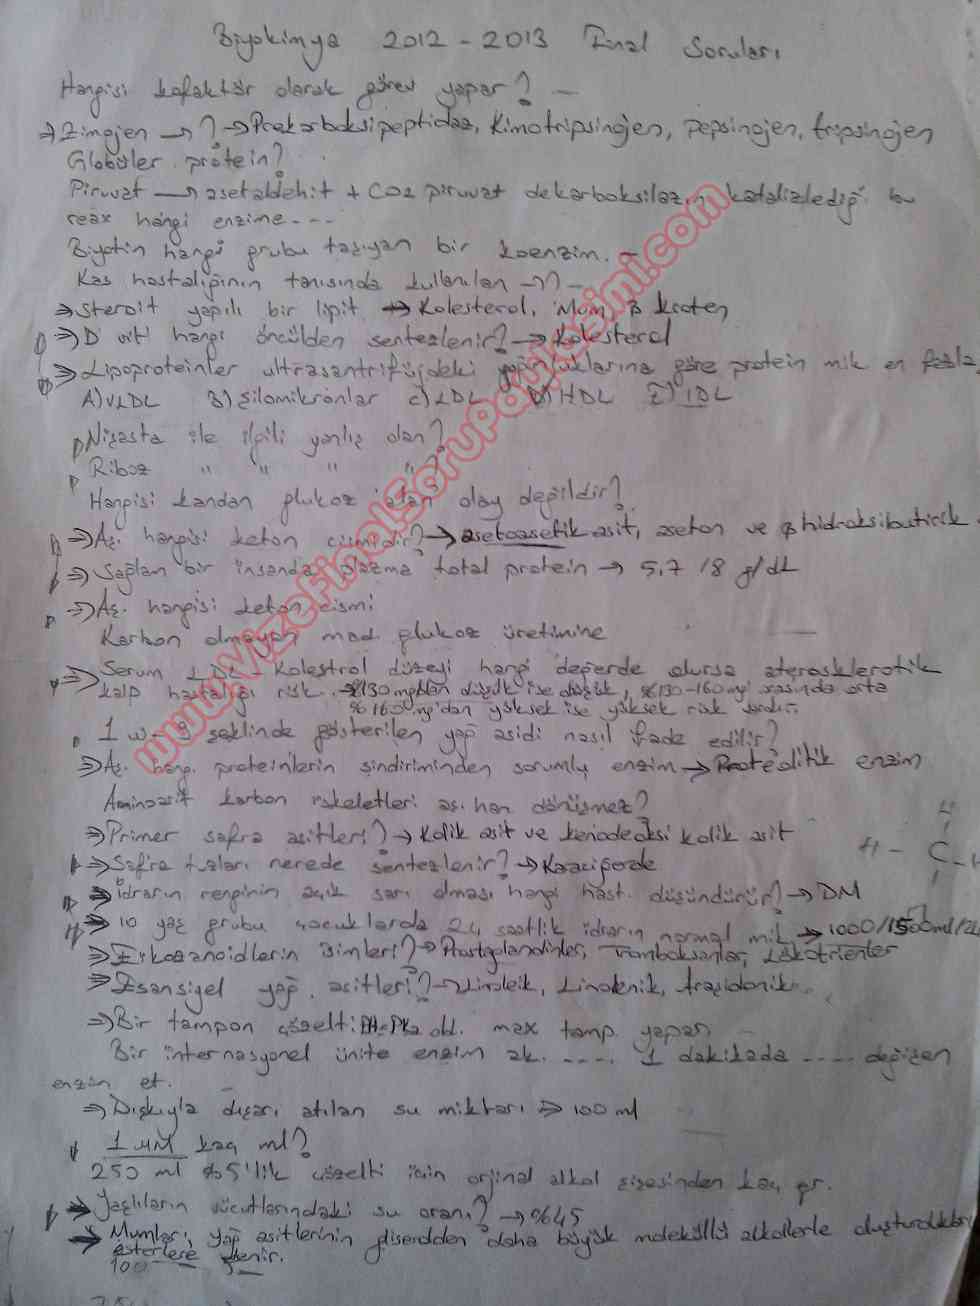 Biyokimya 2012 - 2013 Final Soruları
Hangisi kofaktör olarak görev yapar? —
⇒ Zimojen → ? → Prokarboksipeptidaz, Kimotripsinojen, pepsinojen, tripsinojen
Globüler protein?
Piruvat → asetaldehit + CO2 piruvat dekarboksilazın katalizlediği bu
reax hangi enzime - - -
Biyotin hangi grubu taşıyan bir koenzim. —
Kas hastalığının tanısında kullanılan
⇒ Steroit yapılı bir lipit → Kolesterol, Mum, B karoten
⇒ D vit hangi öncülden sentezlenir? → Kolesterol
⇒ Lipoproteinler ultrasantrifüjdeki yoğunluklarına göre protein mik en fazla
A) VLDL B) Şilomikronlar C) LDL D) HDL E) IDL
Nişasta ile ilgili yanlış olan?
Riboz " " " " ?
Hangisi kandan glukoz olay değildir?
⇒ Aş. hangisi keton cismidir? → asetoasetik asit, aseton ve β hidroksibutirik
⇒ Sağlan bir insanda plazma total protein → 5,7 / 8 g/dL
⇒ Aş. hangisi keton cismi
Karbon olmayan mad. glukoz üretimine —
⇒ Serum LDL - Kolestrol düzeyi hangi değerde olursa aterosklerotik
kalp hastalığı risk. → %130 mg'dan düşük ise düşük, %130-160 mg arasında orta
%160 mg'dan yüksek ise yüksek risk vardır.
1 w - 9 şeklinde gösterilen yağ asidi nasıl ifade edilir?
⇒ Aş. hang. proteinlerin sindiriminden sorumlu enzim → Proteolitik enzim
Aminoasit karbon iskeletleri aş. han dönüşmez?
⇒ Primer safra asitleri? → Kolik asit ve kenodeoksi kolik asit
⇒ Safra tuzları nerede sentezlenir? → Karaciğerde
⇒ İdrarın renginin açık sarı olması hangi hast. düşündürür? → DM
⇒ 10 yaş grubu çocuklarda 24 saatlik idrarın normal mik → 1000/1500ml/24
⇒ Eikozanoidlerin isimleri? → Prostoglandinler, Tromboksanlar, Lökotrienler
⇒ Esansiyel yağ. asitleri? → Linoleik, Linolenik, Araşidonik.
⇒ Bir tampon çözelti: PH=PKa old. max tamp. yapar
Bir internasyonel ünite enzim ak. - - - -. 1 dakikada - - - - değişen
enzim et. —
⇒ Dışkıyla dışarı atılan su miktarı ⇒ 100 ml
1 µM kaç ml?
250 ml %5'lik çözelti için orjinal alkol şişesinden kaç gr.
⇒ Yaşlıların vücutlarındaki su oranı? → %45
→ Mumlar, yağ asitlerinin gliserolden daha büyük moleküllü alkollerle oluşturdukları
esterlere denir.
100
H
H - C - H
www.VizeFinalSoruPaylasimi.com